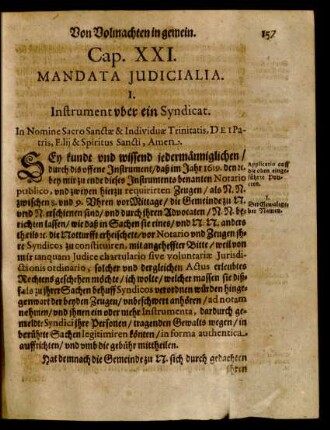 Von Volmachten in gemein. 157
Cap. XXI.
MANDATA JUDICIALIA.
I.
Instrument vber ein Syndicat.
In Nomine Sacro Sanctæ & Individuæ Trinitatis, DEI Pa-
tris, Filij & Spiritus Sancti, Amen.
SEy kundt vnd wissend jedermänniglichen /
durch diß offene Instrument / daß im Jahr 1619. den 11.
bey mir zu ende dieses Instruments benanten Notario
publico, vnd zweyen hinzu requirirten Zeugen / als N. N.
zwischen 8. vnd 9. Vhren vor Mittage / die Gemeinde zu N.
vnd N. erschienen sind / vnd durch ihren Advocaten / N. N. be-
richten lassen / wie daß in Sachen sie eines / vnd N. N. anders
theils ꝛc. die Notturfft erheischete / vor Notario vnd Zeugen jh-
re Syndicos zu constituiren, mit angeheffter Bitte / weil von
mir tanquam Judice chartulario sive voluntariæ Jurisdi-
ctionis ordinario, solcher vnd dergleichen Actus erleubtes
Rechtens geschehen möchte / ich wolte / welcher massen sie diß-
fals zu jhrer Sachen behuff Syndicos verordnen würden hinge-
genwart der beyden Zeugen / vnbeschwert anhören / ad notam
nehmen / vnd jhnen ein oder mehr Instrumenta, dardurch ge-
meldte Syndici jhre Personen / tragenden Gewalts wegen / in
berührte Sachen legitimiren könten / in forma authentica
auffrichten / vnd vmb die gebühr mittheilen.
Hat demnach die Gemeinde zu N. sich durch gedachten
jhren
Applicatio auff
die oben einge-
führte Pun-
cten.
1.
Der Gewaltge-
ber Namen.